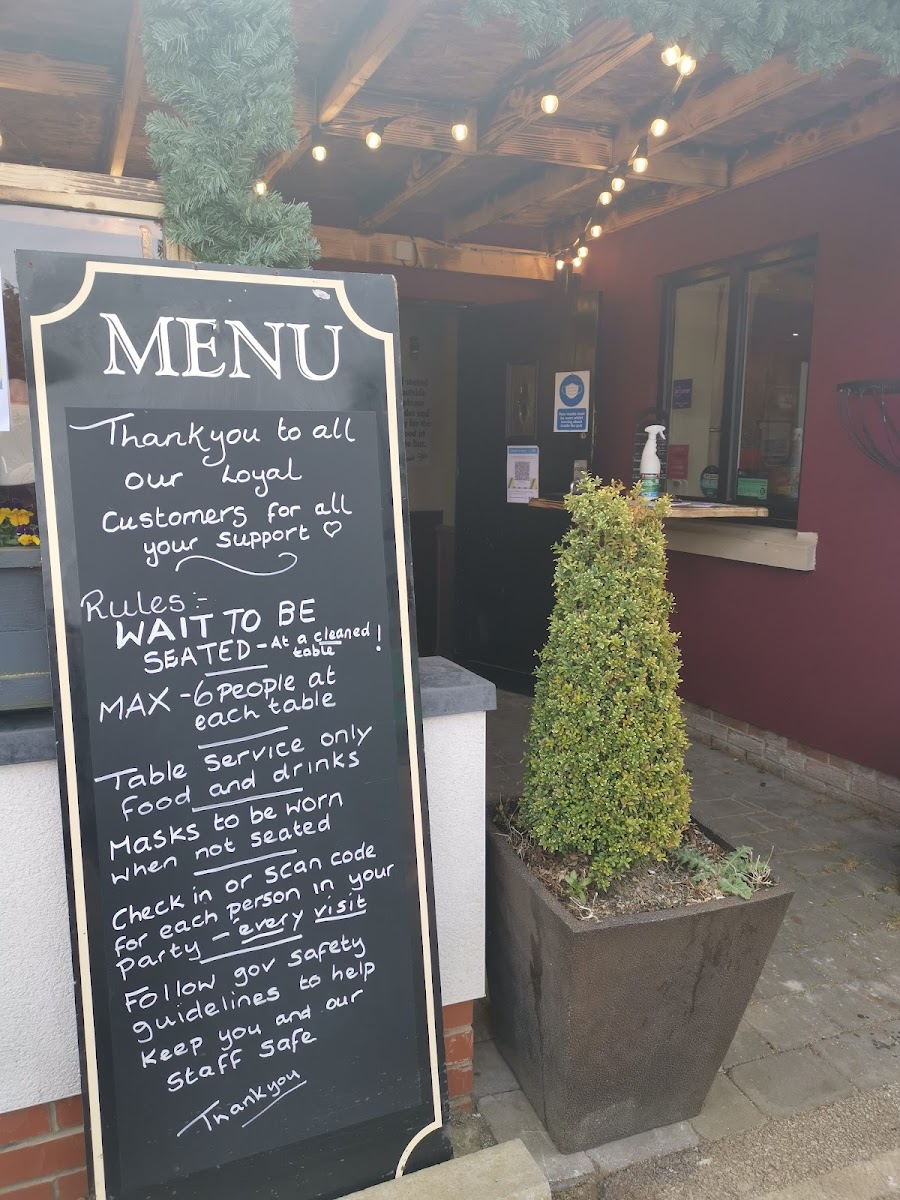 MENU
Thankyou to all
our Loyal
Customers for all
your support ♡
Rules:-
WAIT TO BE
SEATED - At a cleaned
table !
MAX - 6 people at
each table
Table service only
food and drinks
Masks to be worn
when not seated
Check in or scan code
for each person in your
party - every visit
Follow gov safety
guidelines to help
keep you and our
staff safe
Thankyou